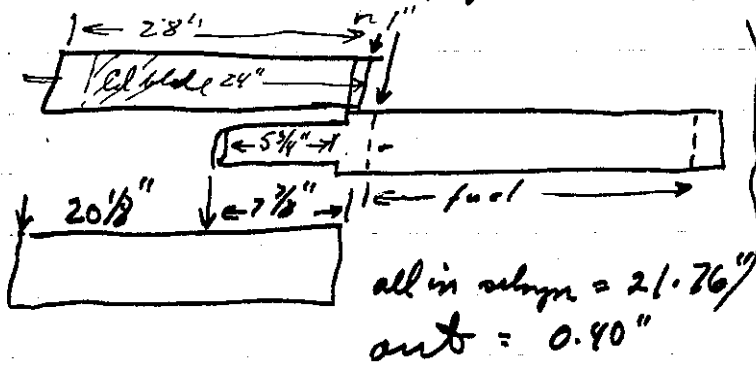 28" ~ 1"
Cd blade 24"
5 3/4"
20 1/8" 7 7/8" fuel
all in selsyn = 21.76"
out = 0.40"